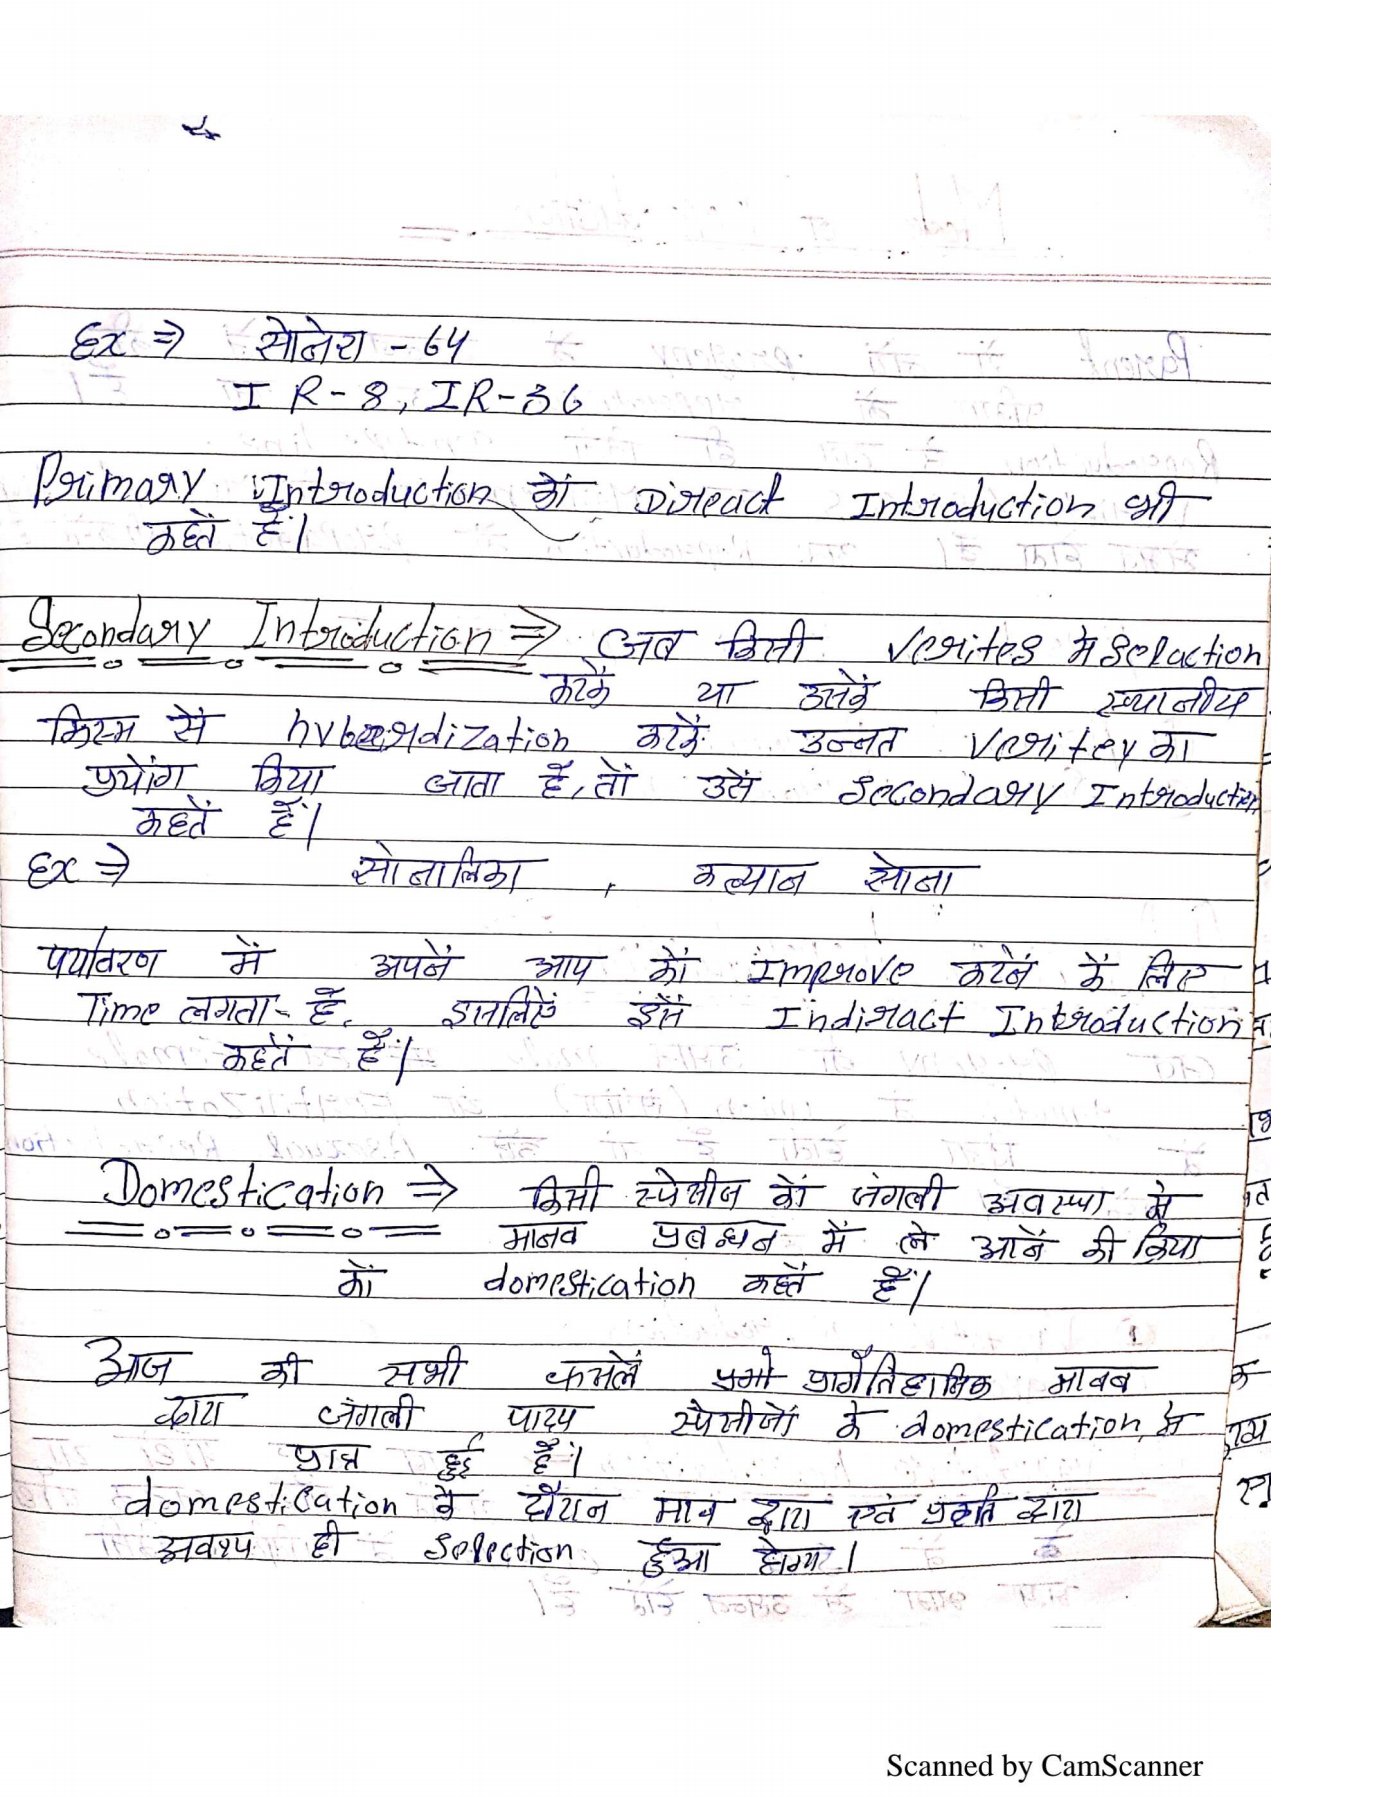 Ex ⇒ सोनेरा - 64
I R - 8, IR-36
Primary Introduction को Direact Introduction भी
कहतें हैं।
Secondary Introduction ⇒ जब किसी Verites मे Selaction
करकें या उसकें किसी स्थानीय
किस्म सें करकें उन्नत Veritey का
प्रयोंग किया जाता हैं, तों उसें Secondary Introduction
कहतें हैं।
Ex ⇒ सोनालिका , कल्यान सोना
पर्यावरण में अपनें आप कों Improve करनें कें लिए
Time लगता - हैं, इसलिऐं इसें Indiract Introduction
कहतें हैं।
Domestication ⇒ किसी स्पेसीज कों जंगली अवस्था से
मानव प्रबन्धन में ले आनें की क्रिया
कों domestication कहतें हैं।
आज की सभी फसलें प्रागैतिहासिक मावब
द्वारा जंगली पादप स्पेसीजों के domestication से
प्राप्त हुई हैं।
domestication के दौरान माव द्वारा एवं प्रकृति द्वारा
अवश्य ही Selection हुआ होगा।
Scanned by CamScanner